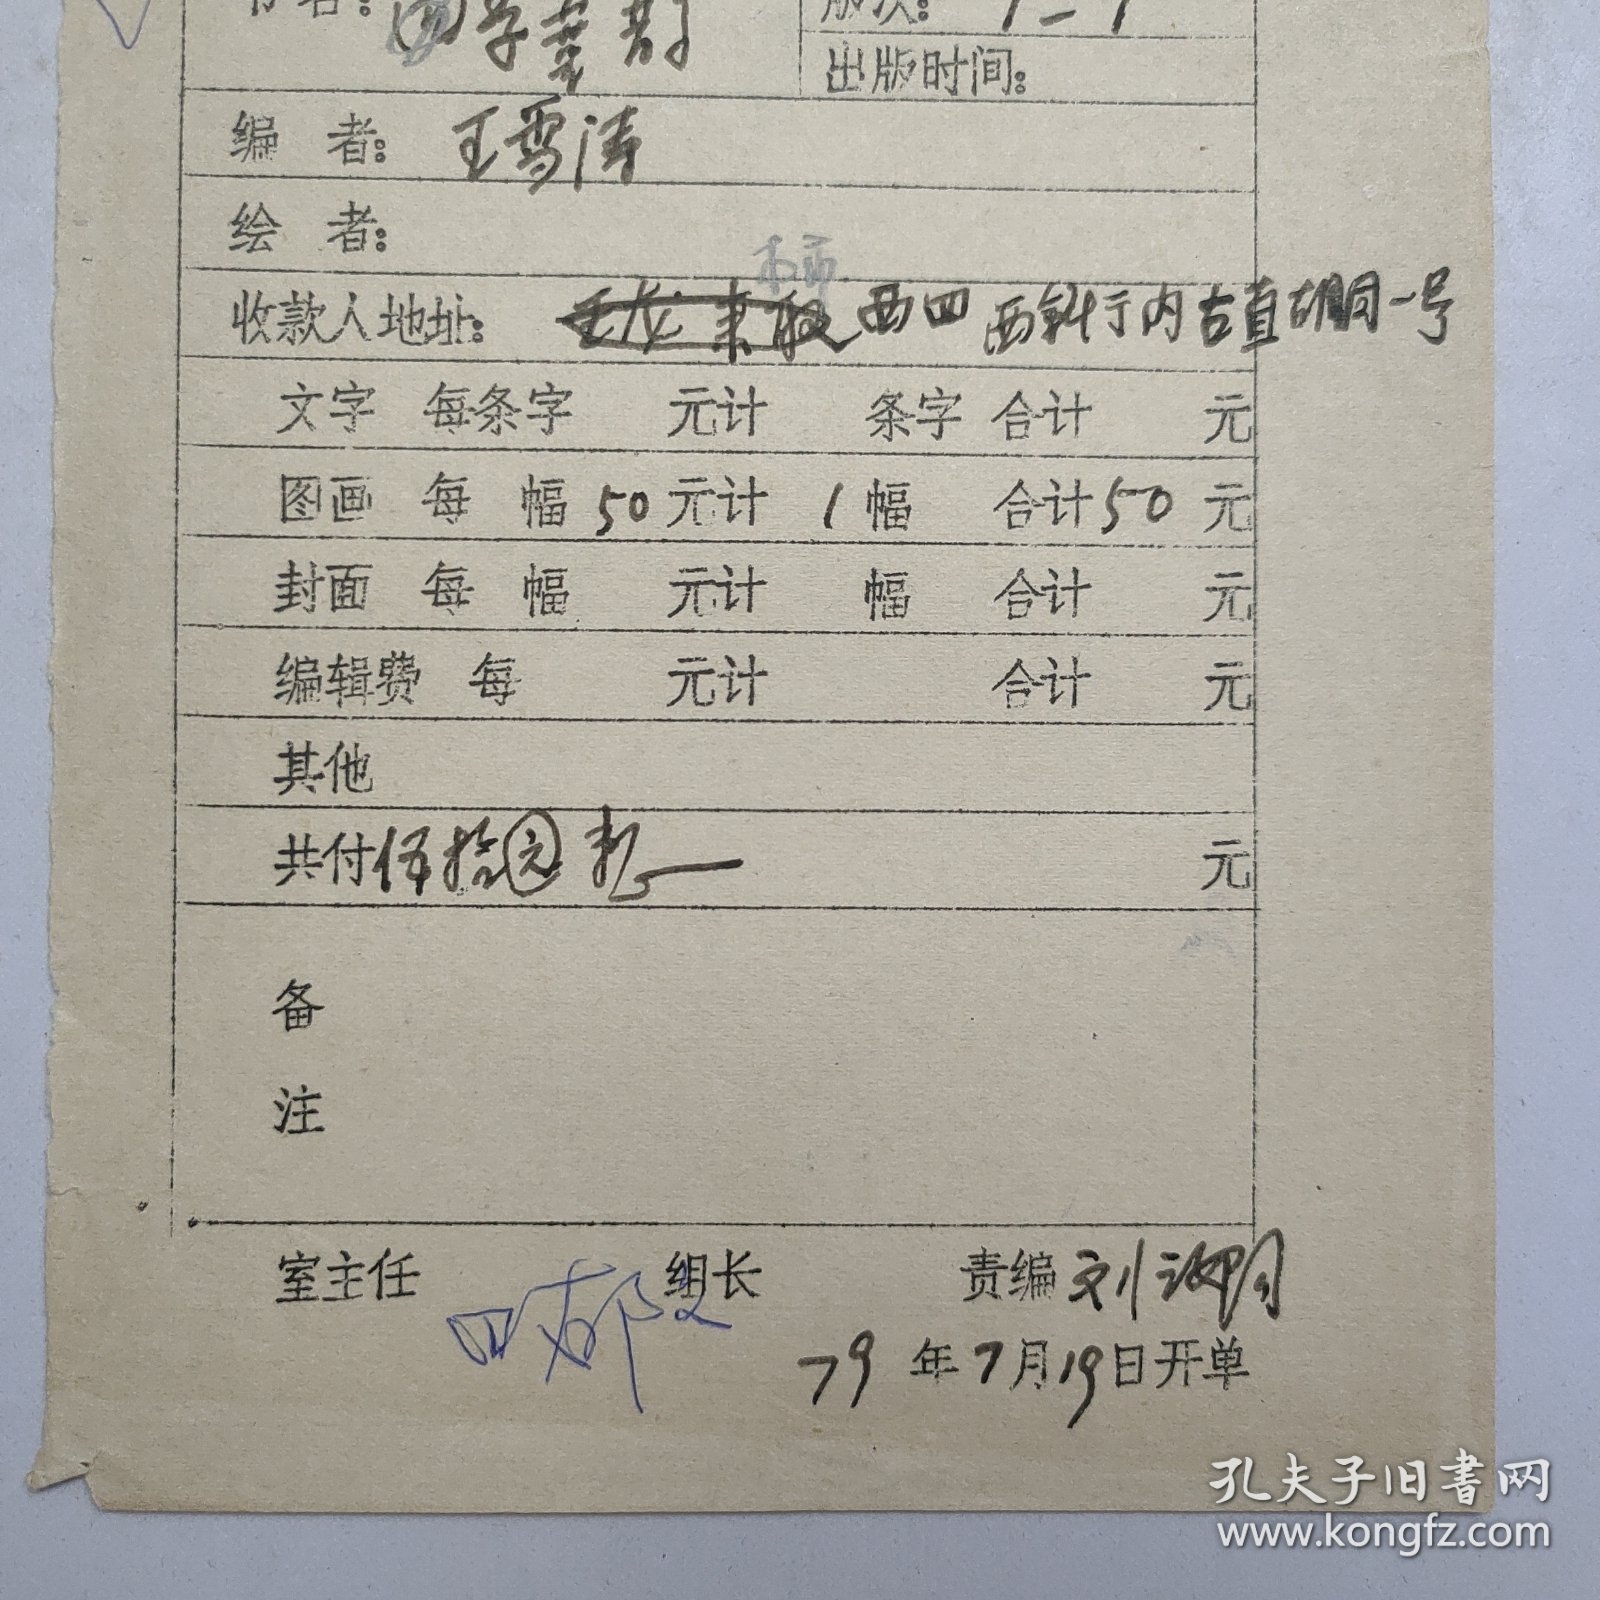 书名：
版次：1-1
出版时间：
编 者：王雪涛
绘 者：
收款人地址： 西四 西斜街内古直胡同一号
文字 每条字 元计 条字 合计 元
图画 每 幅 50 元计 1 幅 合计 50 元
封面 每 幅 元计 幅 合计 元
编辑费 每 元计 合计 元
其他
共付伍拾元 元
备
注
室主任 组长 责编 刘
79 年 7 月 19 日开单
孔夫子旧书网
www.kongfz.com